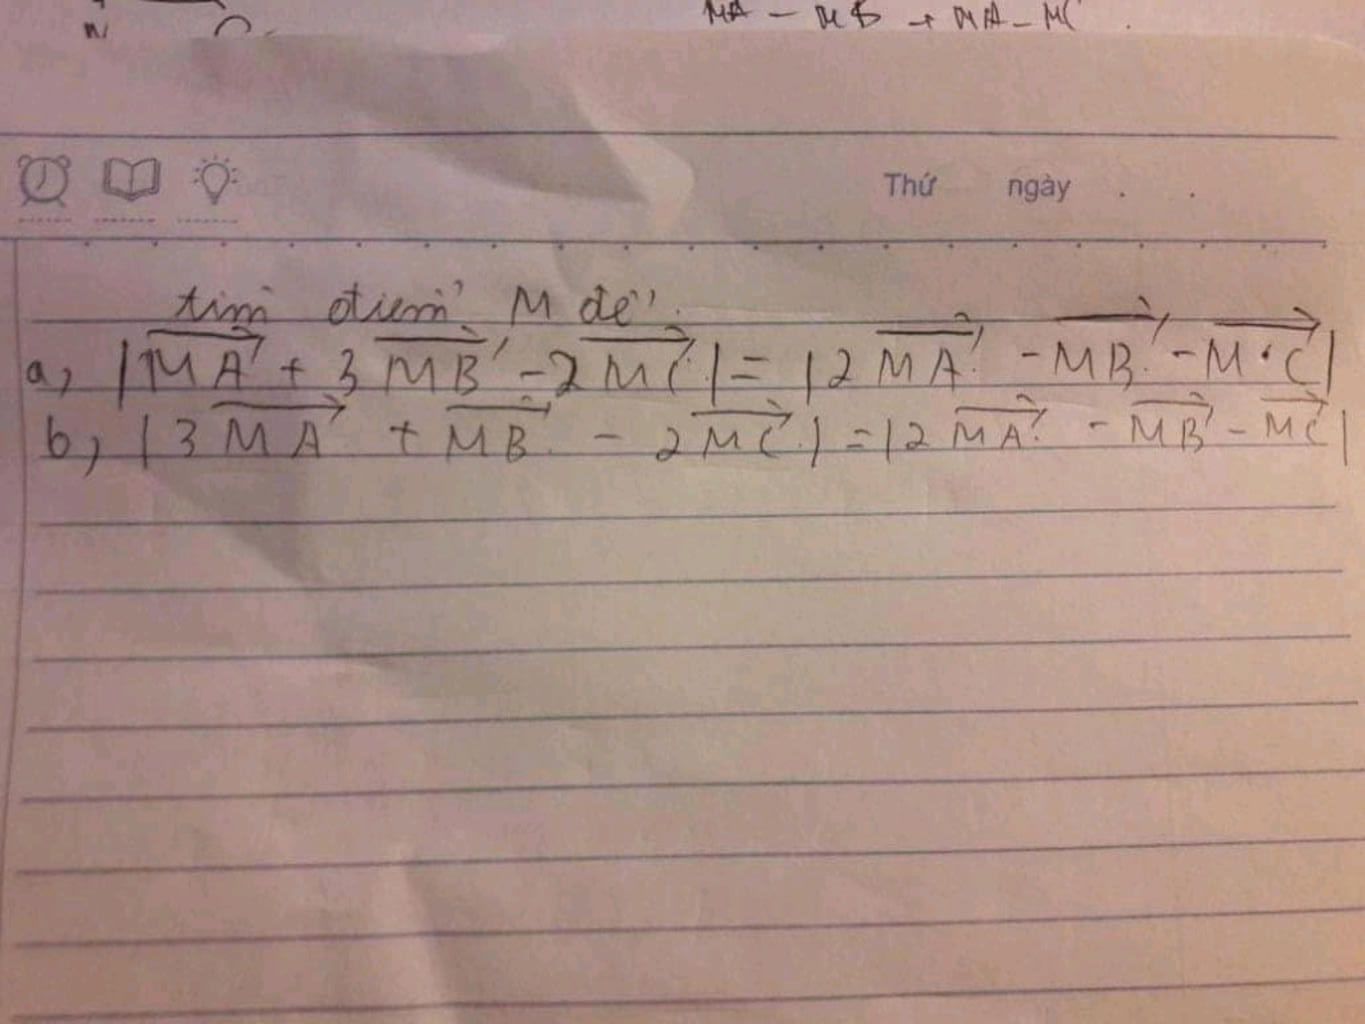 MA - MB + MA - MC
Thứ ngày . .
tìm điểm M để
a, |MA + 3 MB - 2 MC| = |2 MA - MB - M·C|
b, |3 MA + MB - 2 MC| = |2 MA - MB - MC|